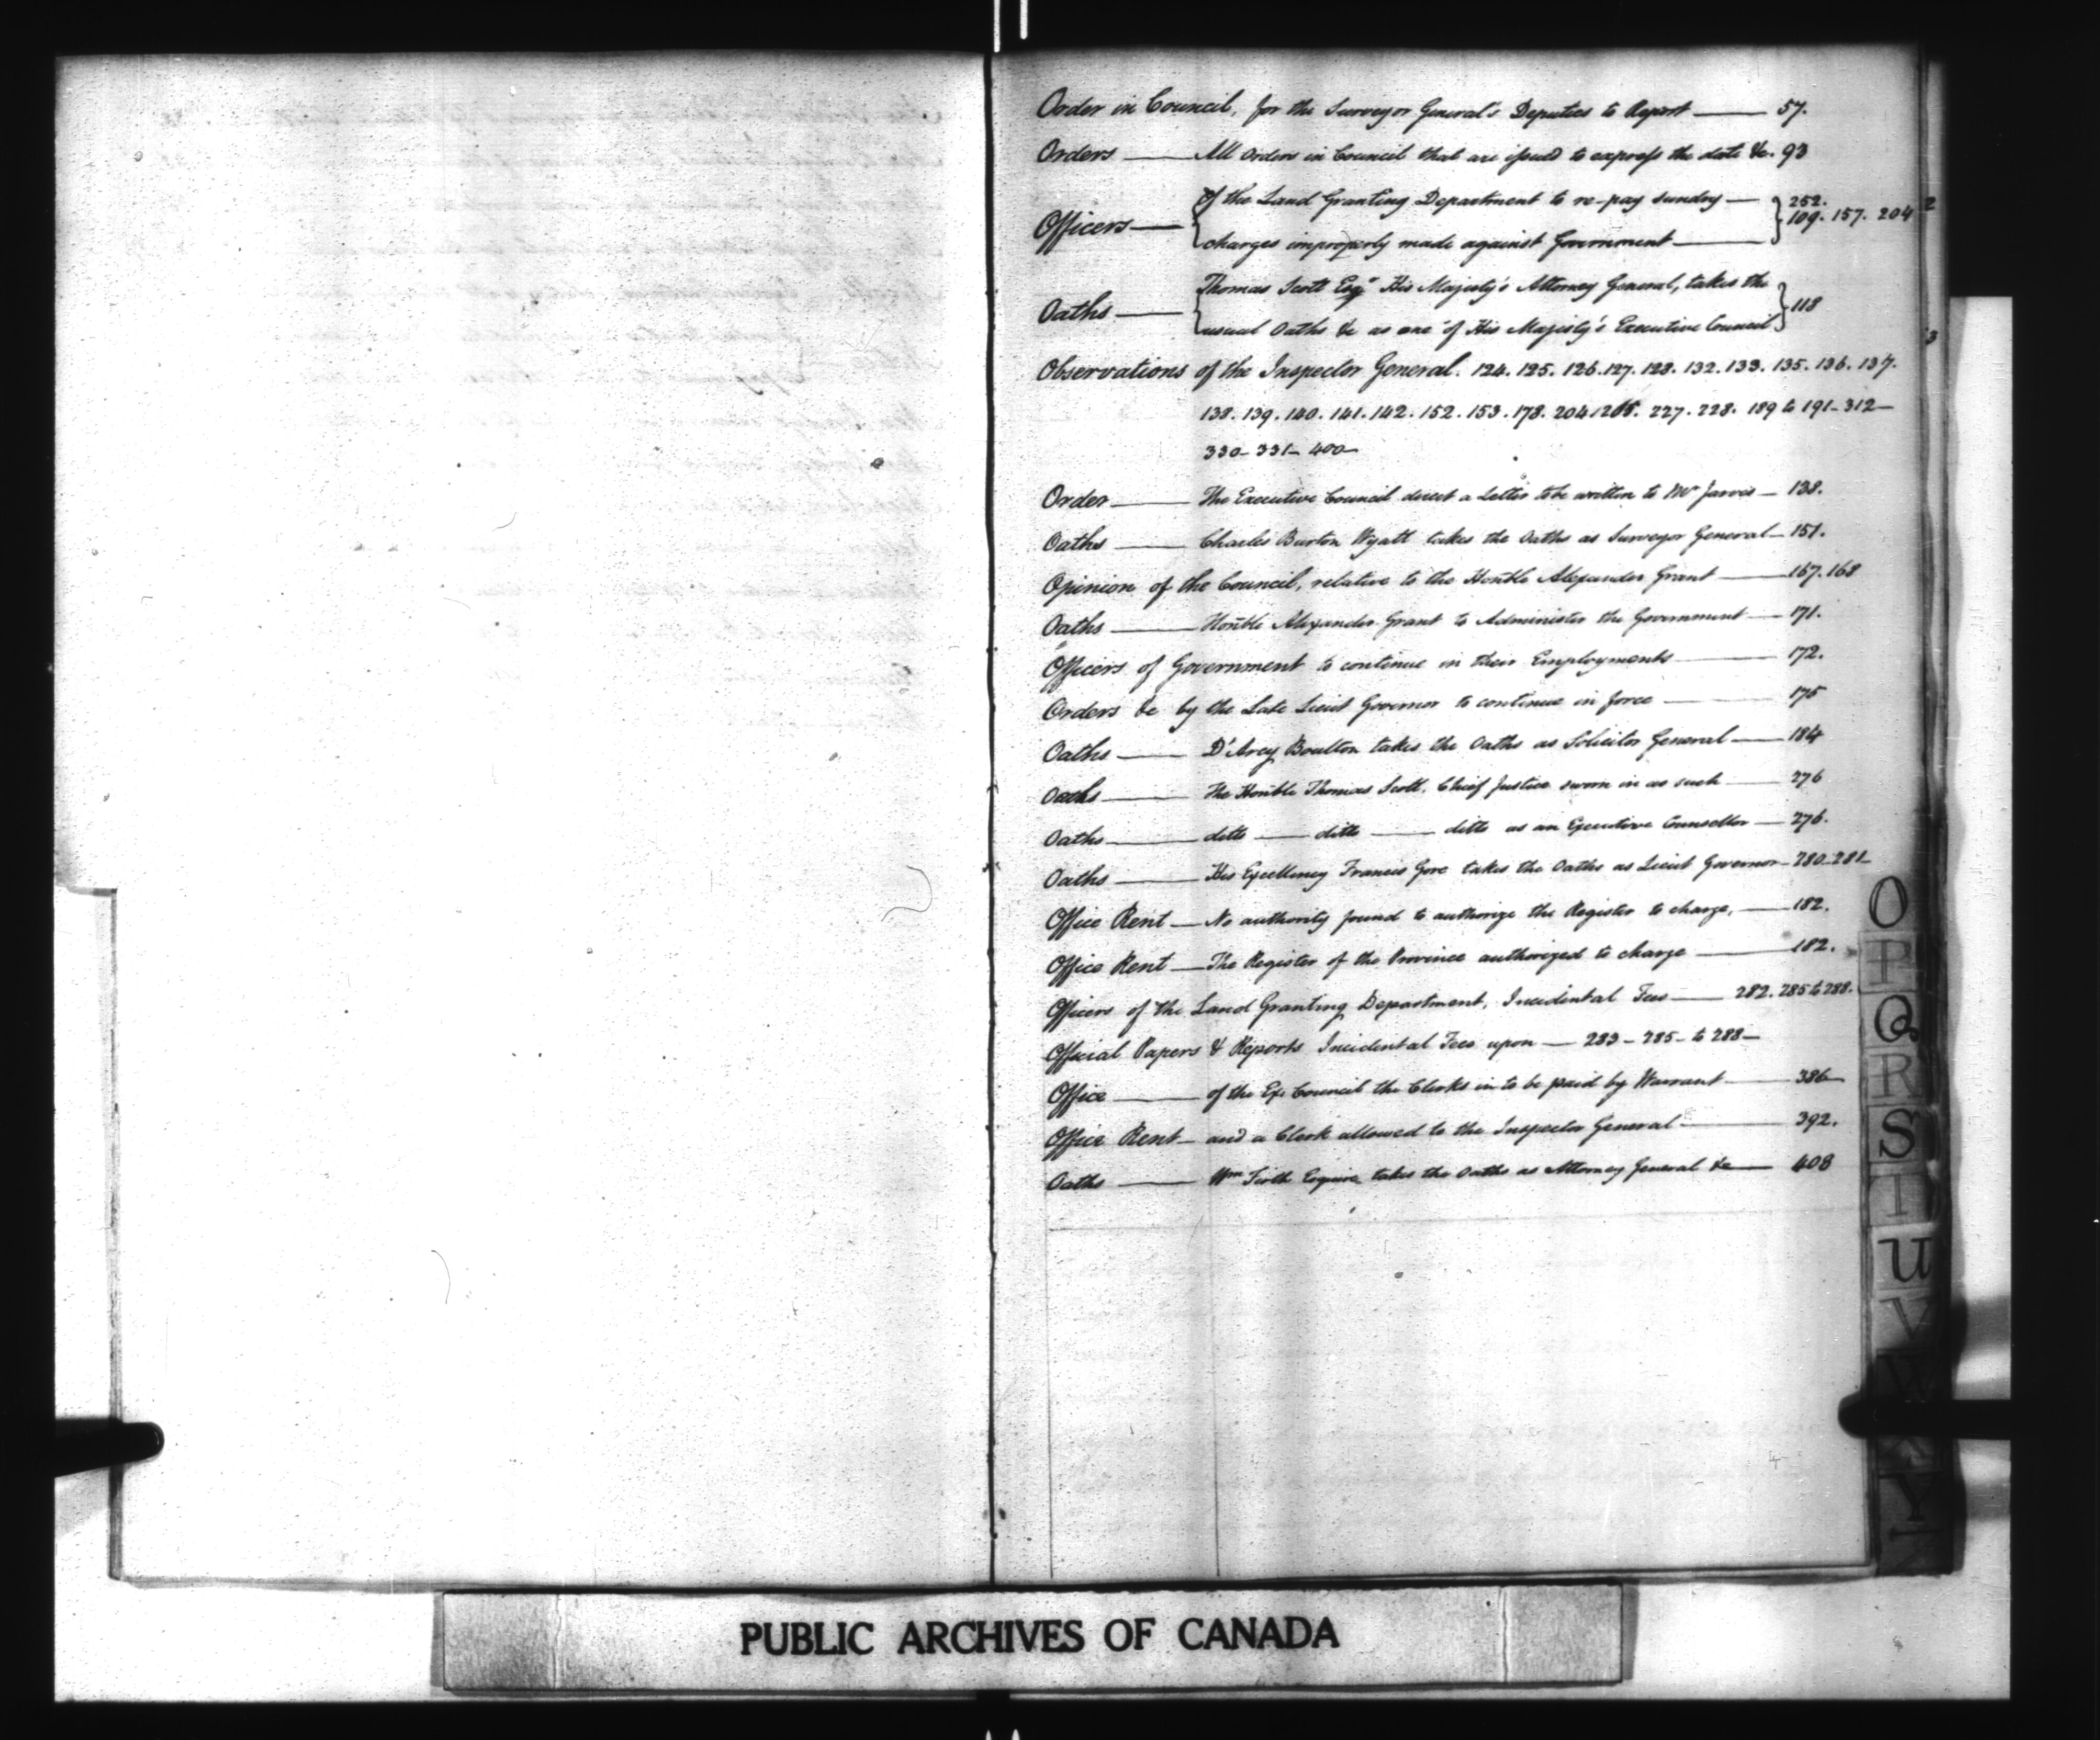 Order in Council, for the Surveyor General's Deputies to Report —— 57.
Orders —— All Orders in Council that are issued to express the date &c. 93
Officers — of the Land Granting Department to re-pay sundry — 252.
charges improperly made against Government —— 109. 157. 204
Oaths — Thomas Scott Esqr His Majesty's Attorney General, takes the
usual Oaths &c as one of His Majesty's Executive Council 118
Observations of the Inspector General. 124. 125. 126. 127. 128. 132. 133. 135. 136. 137.
138. 139. 140. 141. 142. 152. 153. 178. 204 227. 228. 189 to 191 - 312 —
330 - 331 - 400 —
Order —— The Executive Council direct a Letter to be written to Mr Jarvis — 138.
Oaths —— Charles Burton Wyatt takes the Oaths as Surveyor General — 151.
Opinion of the Council, relative to the Honble Alexander Grant —— 167. 168
Oaths —— Honble Alexander Grant to Administer the Government —— 171.
Officers of Government to continue in their Employments —— 172.
Orders &c by the Late Lieut Governor to continue in force —— 175
Oaths —— D'Arcy Boulton takes the Oaths as Solicitor General —— 184
Oaths —— The Honble Thomas Scott, Chief Justice sworn in as such —— 276
Oaths —— ditto —— ditto —— ditto as an Executive Counsellor —— 276.
Oaths —— His Excellency Francis Gore takes the Oaths as Lieut Governor — 280 - 281 —
Office Rent — No authority found to authorize the Register to charge, —— 182.
Office Rent — The Register of the Province authorized to charge —— 182.
Officers of the Land Granting Department, Incidental Fees —— 282. 285 to 288.
Official Papers & Reports Incidental Fees upon —— 283 - 285 - to 288 —
Office —— of the Ex. Council the Clerks in to be paid by Warrant —— 386 —
Office Rent — and a Clerk allowed to the Inspector General —— 392.
Oaths —— Wm Firth Esquire takes the Oaths as Attorney General &c —— 408
O
P
Q
R
S
T
U
V
W
X
Y
Z
PUBLIC ARCHIVES OF CANADA